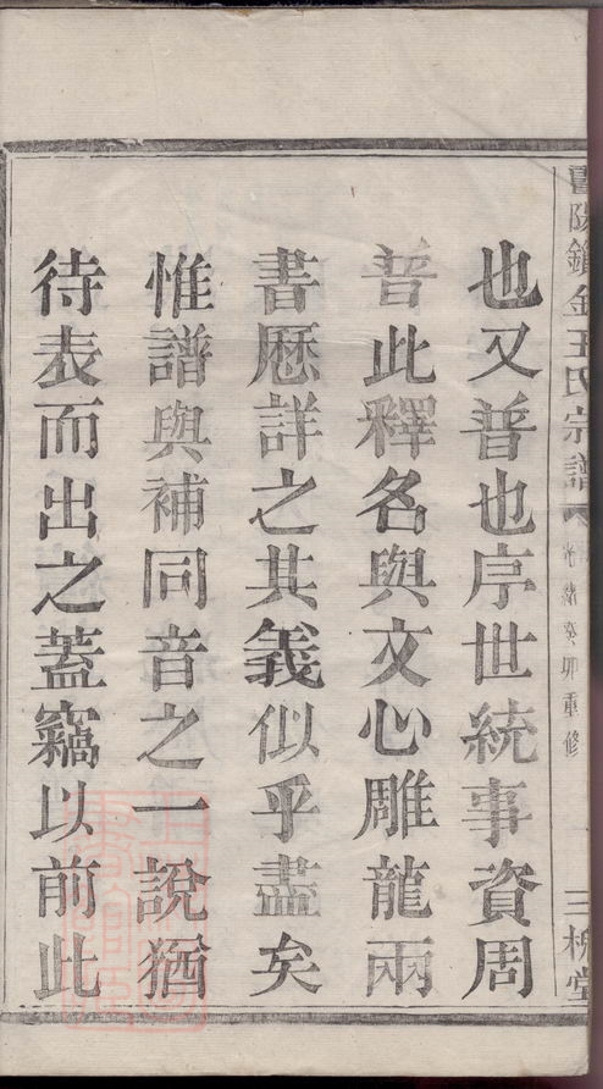 陽鎖金王氏宗譜 光緒癸卯重修 三槐堂
也又普也序世統事資周
普此釋名與文心雕龍兩
書歷詳之其義似乎盡矣
惟譜與補同音之一說猶
待表而出之蓋竊以前此